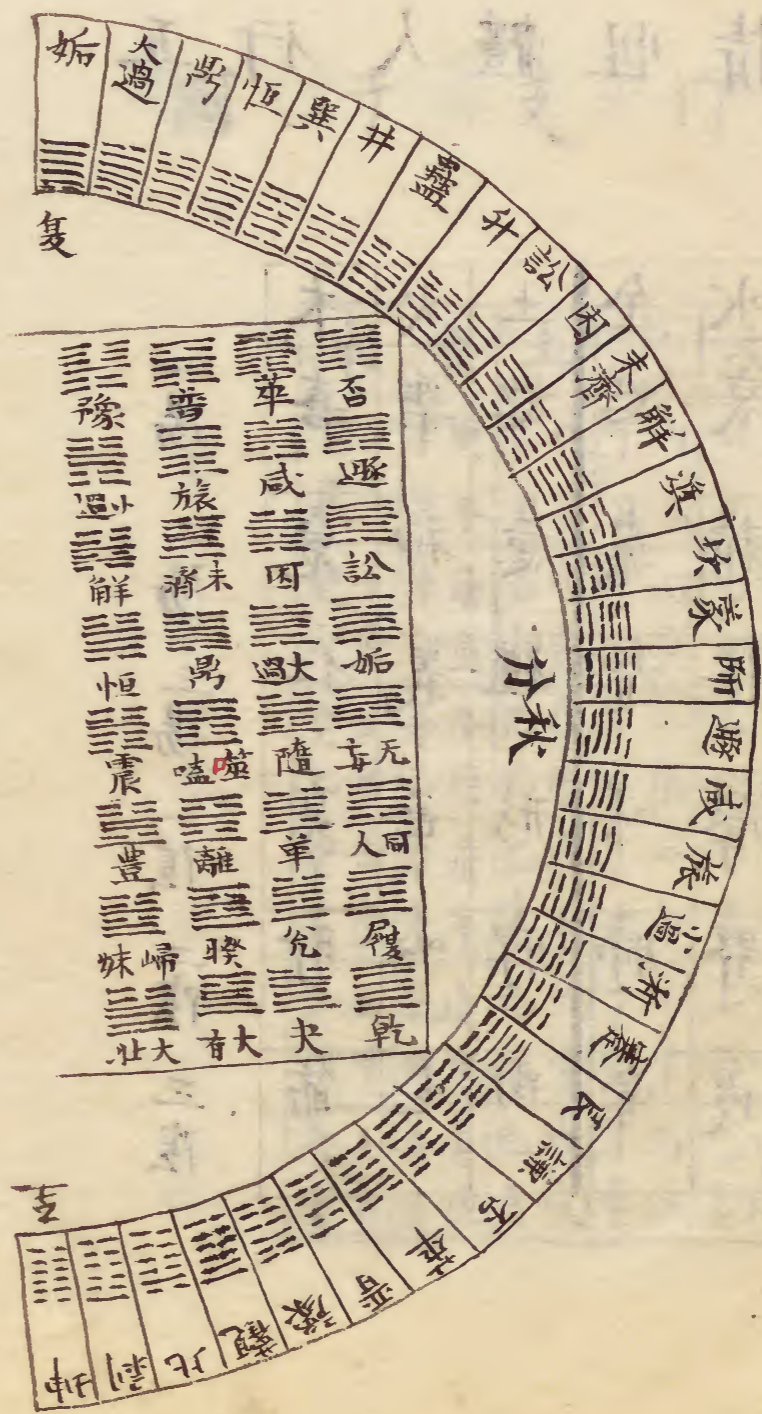 姤
大過
鼎
恒
巽
井
蠱
升
訟
困
未濟
解
渙
坎
蒙
師
遯
咸
旅
小過
漸
蹇
艮
謙
否
萃
晉
豫
觀
比
剥
坤
夏
秋分
至
否
遯
訟
姤
无妄
同人
履
乾
萃
咸
困
大過
隨
革
兌
夬
晉
旅
未濟
鼎
噬嗑
離
睽
大有
豫
小過
解
恒
震
豐
歸妹
大壯